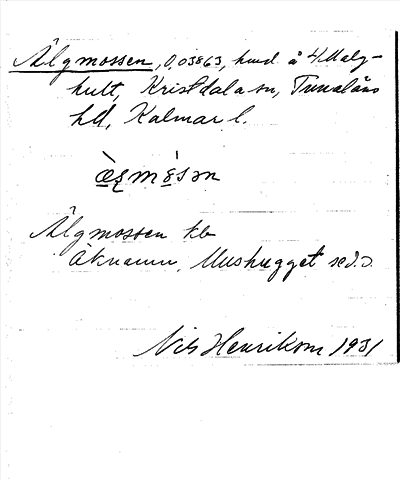 Älgmossen, 0,03863, hmd å 4 Malg-
hult, Kristdala sn, Tunaläns
hd, Kalmar l.
Älgmossen tlr
Åknamn, Mushugget se d.o.
Nils Henrikson 1931